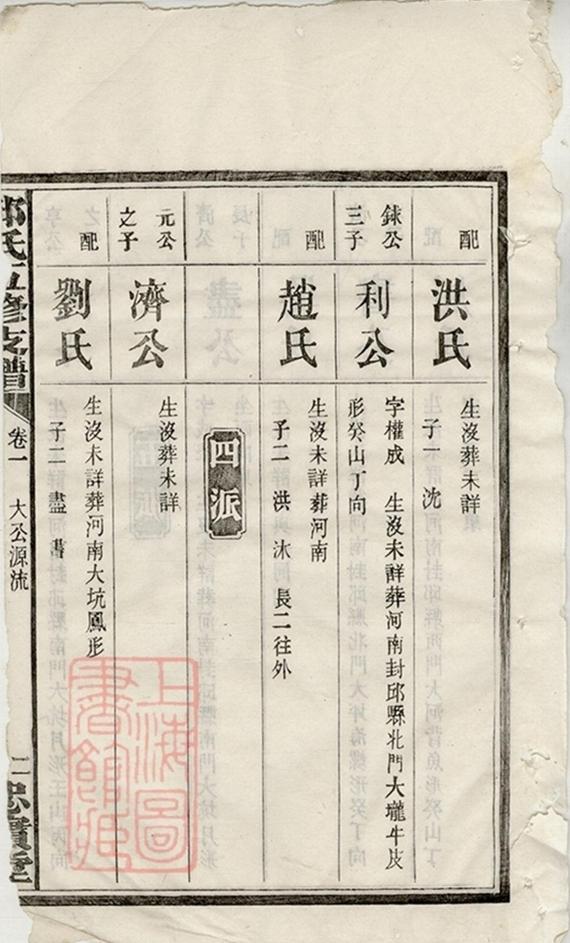 配
洪氏
生沒葬未詳
子一 沈
銶公
三子
利公
字權成 生沒未詳葬河南封邱縣北門大壠牛皮
形癸山丁向
配
趙氏
生沒未詳葬河南
子二 洪 沐 長二往外
四派
元公
之子
濟公
生沒葬未詳
配
劉氏
生沒未詳葬河南大坑鳳形
子二 盡 書
氏五修支譜
卷一
大公源流
二
忠實堂
上海圖
書館藏